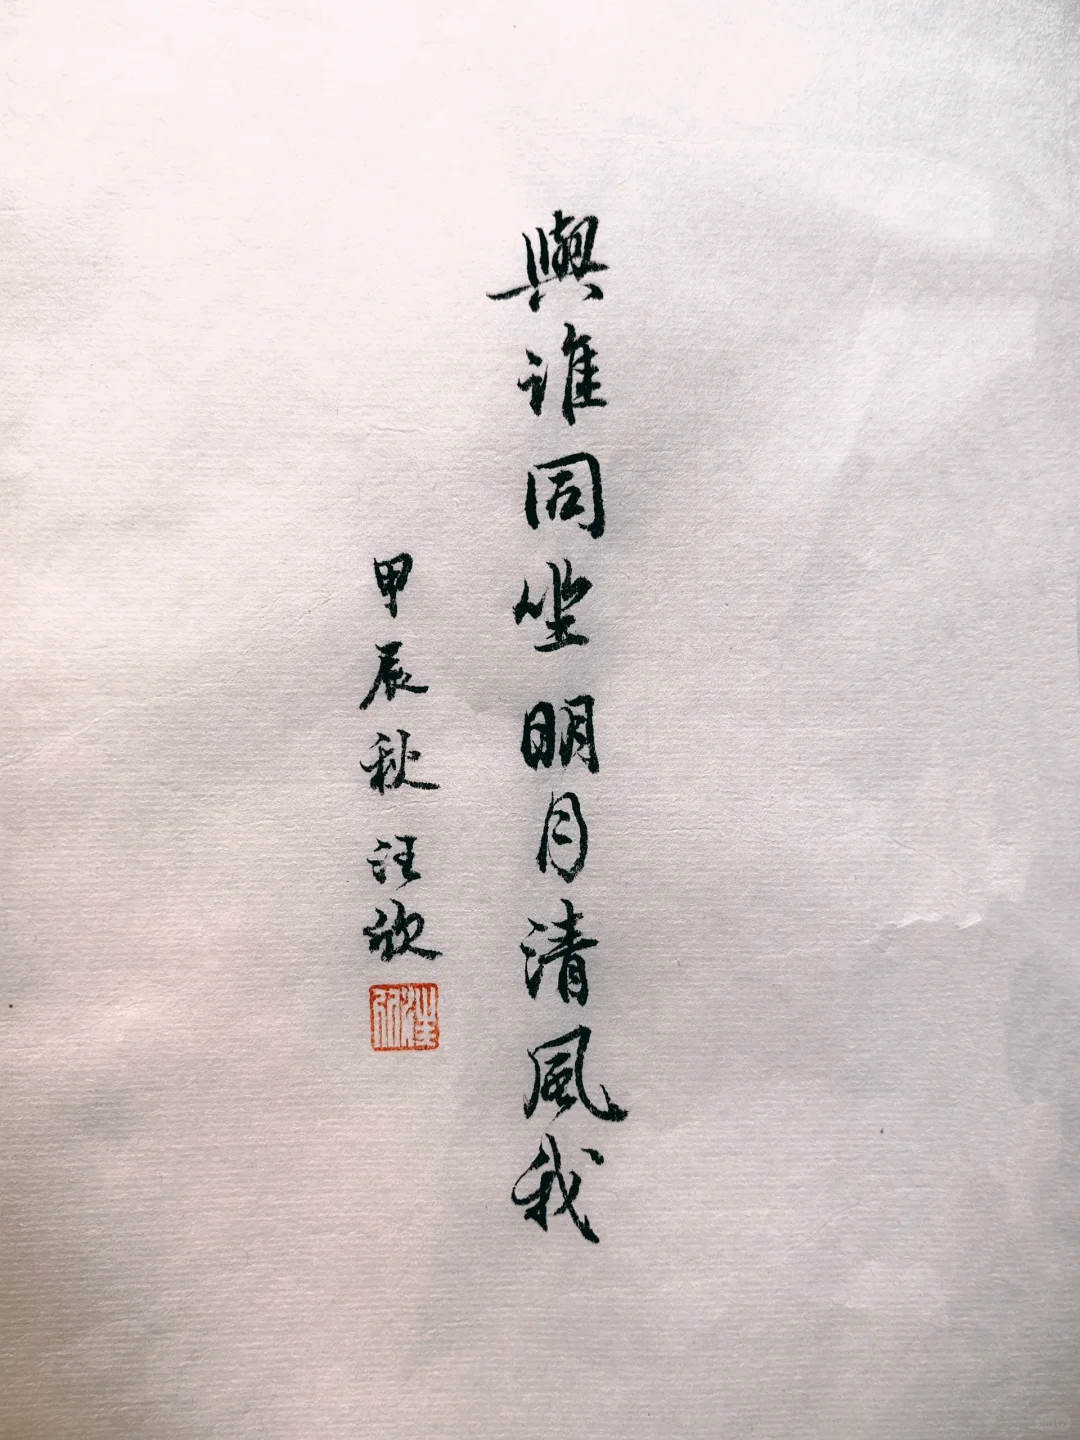 與誰同坐明月清風我
甲辰秋汪欣